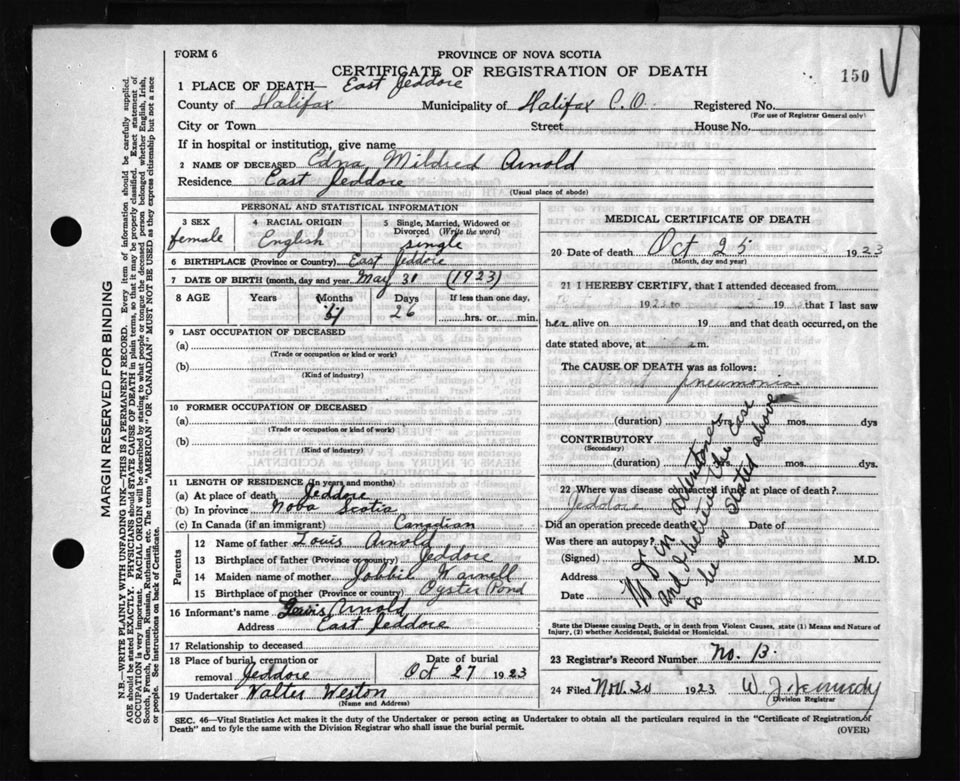 FORM 6
PROVINCE OF NOVA SCOTIA
CERTIFICATE OF REGISTRATION OF DEATH
150
1 PLACE OF DEATH— East Jeddore
County of Halifax Municipality of Halifax C.O. Registered No.
(For use of Registrar General only)
City or Town Street House No.
If in hospital or institution, give name
2 NAME OF DECEASED Edna Mildred Arnold
Residence East Jeddore
(Usual place of abode)
PERSONAL AND STATISTICAL INFORMATION
3 SEX
female
4 RACIAL ORIGIN
English
5 Single, Married, Widowed or Divorced (Write the word)
single
6 BIRTHPLACE (Province or Country) East Jeddore
7 DATE OF BIRTH (month, day and year) May 31 (1923)
8 AGE Years Months Days If less than one day,
26 hrs. or min.
9 LAST OCCUPATION OF DECEASED
(a)
(Trade or occupation or kind or work)
(b)
(Kind of industry)
10 FORMER OCCUPATION OF DECEASED
(a)
(Trade or occupation or kind of work)
(b)
(Kind of industry)
11 LENGTH OF RESIDENCE (In years and months)
(a) At place of death Jeddore
(b) In province Nova Scotia
(c) In Canada (if an immigrant) Canadian
Parents
12 Name of father Louis Arnold
13 Birthplace of father (Province or country) Jeddore
14 Maiden name of mother Warnell
15 Birthplace of mother (Province or country) Oyster Pond
16 Informant's name Louis Arnold
Address East Jeddore
17 Relationship to deceased
18 Place of burial, cremation or removal Jeddore
Date of burial
Oct 27 1923
19 Undertaker Walter Weston
(Name and Address)
MEDICAL CERTIFICATE OF DEATH
20 Date of death Oct 25 1923
(Month, day and year)
21 I HEREBY CERTIFY, that I attended deceased from
19 to 19 that I last saw
her alive on 19 and that death occurred, on the
date stated above, at m.
The CAUSE OF DEATH was as follows:
pneumonia
(duration) yrs. mos. dys
CONTRIBUTORY
(Secondary)
(duration) mos. dys.
22 Where was disease contracted if not at place of death?
Jeddore
Did an operation precede death Date of
Was there an autopsy?
(Signed) M.D.
Address
Date
No Dr in attendance and I believe the case to be as stated above
State the Disease causing Death, or in death from Violent Causes, state (1) Means and Nature of
Injury, (2) whether Accidental, Suicidal or Homicidal.
23 Registrar's Record Number No. 13.
24 Filed Nov. 30 1923 W. J. Kennedy
(Division Registrar
SEC. 46—Vital Statistics Act makes it the duty of the Undertaker or person acting as Undertaker to obtain all the particulars required in the "Certificate of Registration of
Death" and to fyle the same with the Division Registrar who shall issue the burial permit.
(OVER)
MARGIN RESERVED FOR BINDING
N.B.—WRITE PLAINLY WITH UNFADING INK—THIS IS A PERMANENT RECORD. Every item of information should be carefully supplied.
AGE should be stated EXACTLY. PHYSICIANS should STATE CAUSE OF DEATH in plain terms, so that it may be properly classified. Exact statement of
OCCUPATION is very important. RACIAL ORIGIN will be described by stating to what people or tongue the deceased person belonged whether English, Irish,
Scotch, French, German, Russian, Ruthenian, etc. The terms "AMERICAN" OR "CANADIAN" MUST NOT BE USED as they express citizenship but not a race
or people. See instructions on back of Certificate.